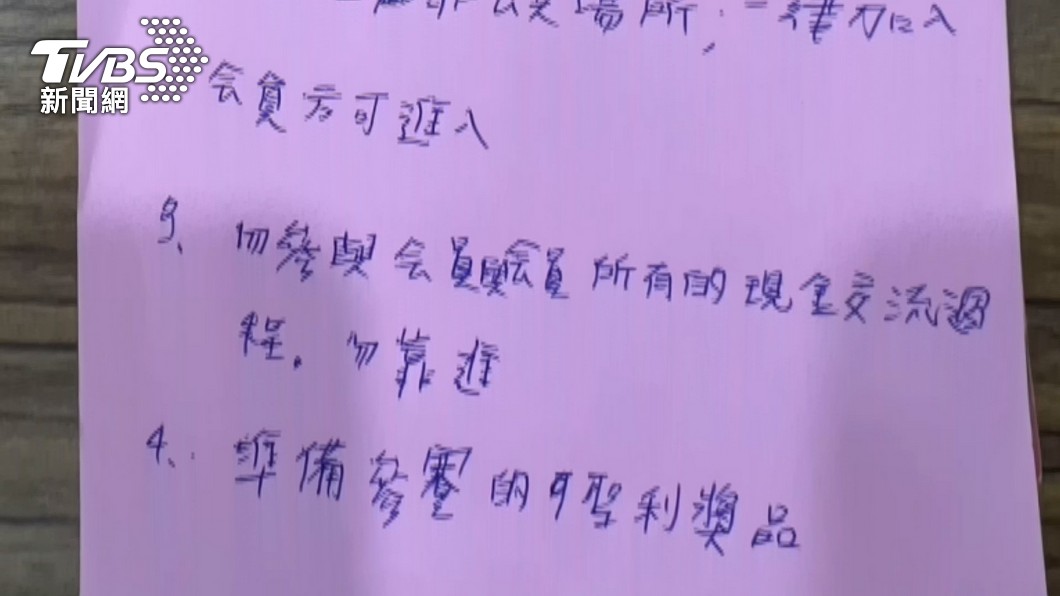 TVBS
新聞網
場所，一律加入
会員方可進入
3、勿參與会員與会員所有的現金交流過
程。勿靠進
4、準備參賽的利獎品